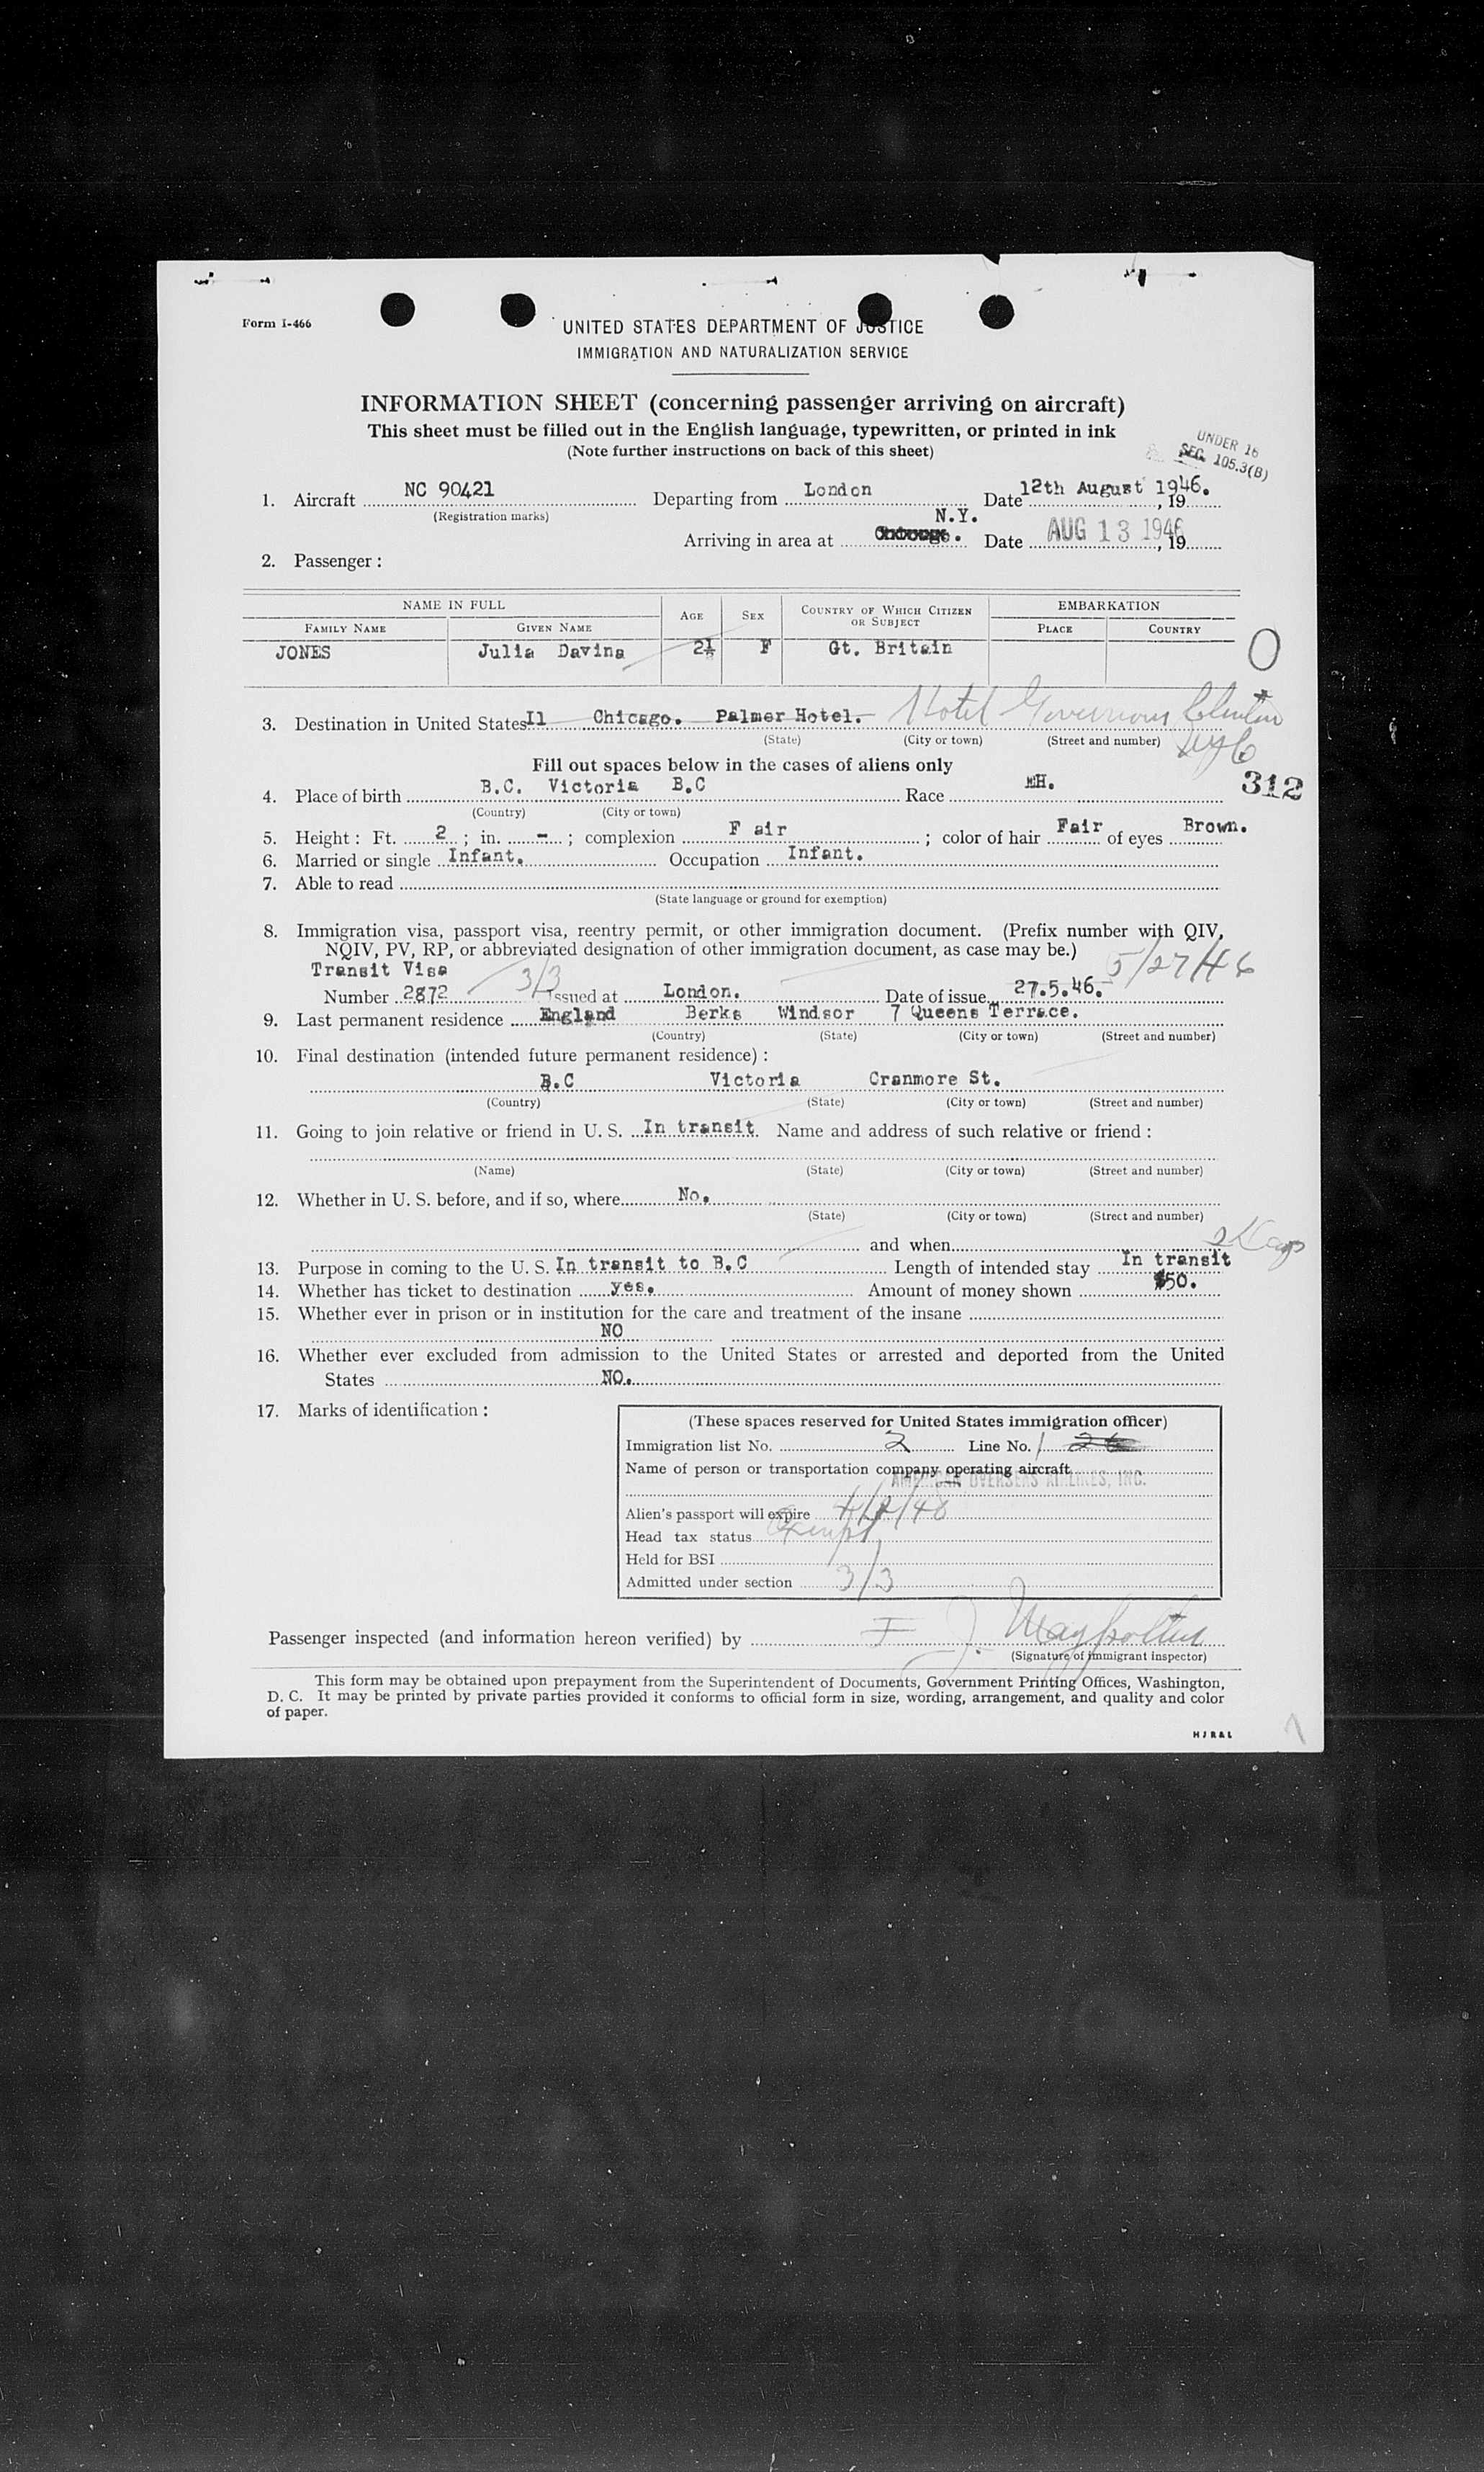 Form I-466
UNITED STATES DEPARTMENT OF JUSTICE
IMMIGRATION AND NATURALIZATION SERVICE
INFORMATION SHEET (concerning passenger arriving on aircraft)
This sheet must be filled out in the English language, typewritten, or printed in ink
(Note further instructions on back of this sheet)
UNDER 16
SEC. 105.3(B)
1. Aircraft NC 90421 Departing from London Date 12th August 1946. , 19
(Registration marks)
N.Y.
Arriving in area at Date AUG 13 1946 , 19
2. Passenger :
NAME IN FULL AGE SEX COUNTRY OF WHICH CITIZEN OR SUBJECT EMBARKATION
FAMILY NAME GIVEN NAME PLACE COUNTRY
JONES Julia Davina 2½ F Gt. Britain O
3. Destination in United States Il Chicago. Palmer Hotel. Hotel Governour Clinton
(State) (City or town) (Street and number) NYC
Fill out spaces below in the cases of aliens only
312
4. Place of birth B.C. Victoria B.C Race H.
(Country) (City or town)
5. Height : Ft. 2 ; in. - ; complexion F air ; color of hair Fair of eyes Brown.
6. Married or single Infant. Occupation Infant.
7. Able to read
(State language or ground for exemption)
8. Immigration visa, passport visa, reentry permit, or other immigration document. (Prefix number with QIV,
NQIV, PV, RP, or abbreviated designation of other immigration document, as case may be.)
Transit Visa 3/3 5/27/46
Number 2872 Issued at London. Date of issue 27.5.46.
9. Last permanent residence England Berks Windsor 7 Queens Terrace.
(Country) (State) (City or town) (Street and number)
10. Final destination (intended future permanent residence) :
B.C Victoria Cranmore St.
(Country) (State) (City or town) (Street and number)
11. Going to join relative or friend in U. S. In transit Name and address of such relative or friend :
(Name) (State) (City or town) (Street and number)
12. Whether in U. S. before, and if so, where No.
(State) (City or town) (Street and number)
and when 2 Days
13. Purpose in coming to the U. S. In transit to B.C Length of intended stay In transit
14. Whether has ticket to destination yes. Amount of money shown $50.
15. Whether ever in prison or in institution for the care and treatment of the insane
NO
16. Whether ever excluded from admission to the United States or arrested and deported from the United
States NO.
17. Marks of identification :
(These spaces reserved for United States immigration officer)
Immigration list No. 2 Line No. 1
Name of person or transportation company operating aircraft
AMERICAN OVERSEAS AIRLINES, INC.
Alien's passport will expire
Head tax status Exempt
Held for BSI
Admitted under section 3/3
Passenger inspected (and information hereon verified) by J.
(Signature of immigrant inspector)
This form may be obtained upon prepayment from the Superintendent of Documents, Government Printing Offices, Washington,
D. C. It may be printed by private parties provided it conforms to official form in size, wording, arrangement, and quality and color
of paper.
H J R & L